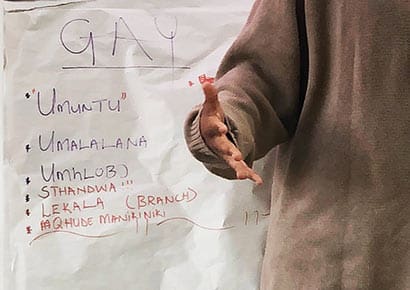 GAY
"UMUNTU"
UMALALANA
UMHLOBO
STHANDWA!!!
LEKALA (BRANCH)
#QHUDE MANIKINIKI